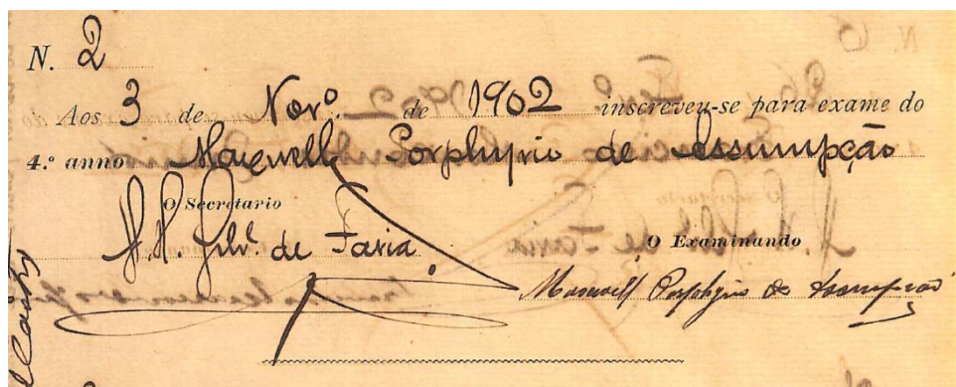 N. 2
Aos 3 de Novº. de 1902 inscreveu-se para exame do
4.º anno Maxwell Porphyrio de Assumpção
O Secretario
de Faria
O Examinando
Maxwell Porphyrio de Assumpção